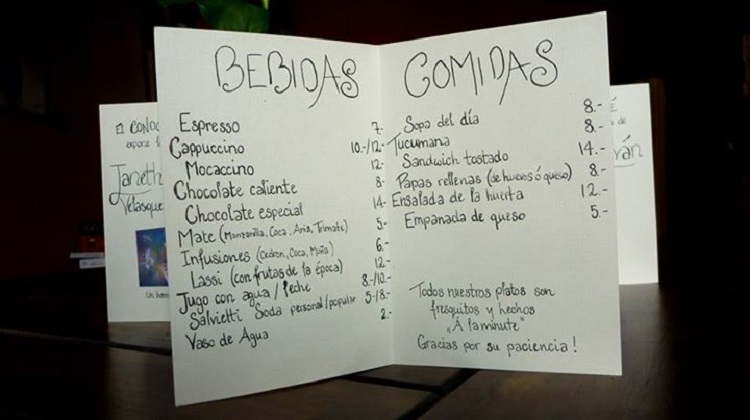 BEBIDAS
Espresso 7.-
Cappuccino 10.-/12.-
Mocaccino 12.-
Chocolate caliente 8.-
Chocolate especial 14.-
Mate (Manzanilla, Coca, Anis, Trimate) 5.-
Infusiones (Cedron, Coca, Muña) 6.-
Lassi (con frutas de la época) 12.-
Jugo con agua/leche 8.-/10.-
Salvietti Soda personal/popular 5.-/8.-
Vaso de Agua 2.-
COMIDAS
Sopa del día 8.-
Tucumana 8.-
Sandwich tostado 14.-
Papas rellenas (de huevos ó queso) 8.-
Ensalada de la huerta 12.-
Empanada de queso 5.-
Todos nuestros platos son
fresquitos y hechos
"A la minute"
Gracias por su paciencia!
Janeth
Velasque